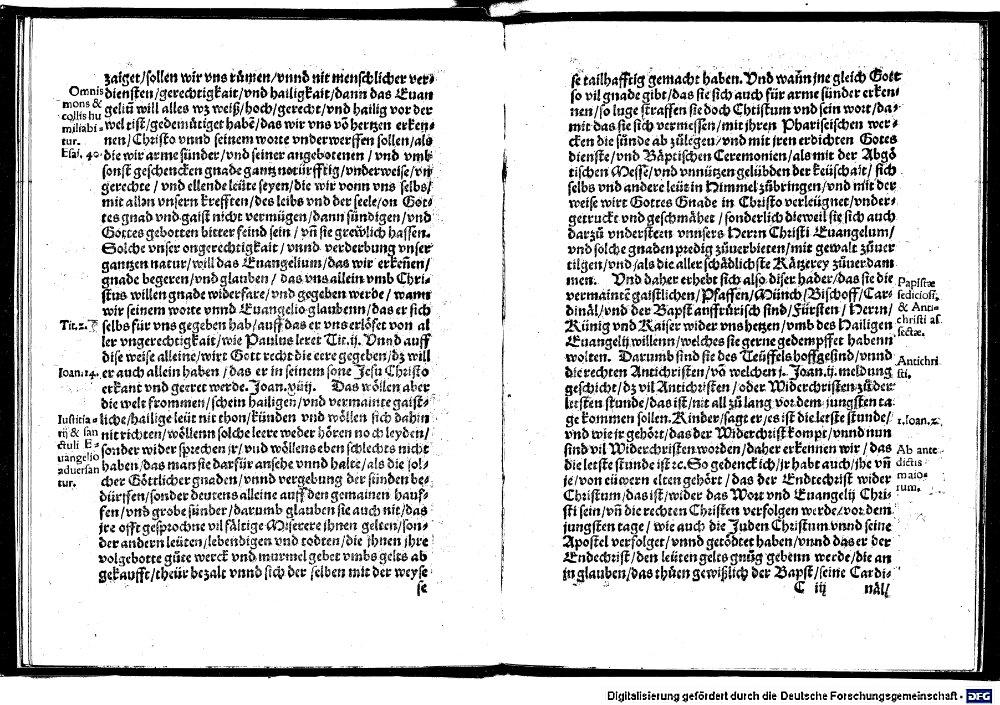 zaiget/sollen wir vns rümen/vnnd nit menschlicher ver-
Omnis mons & collis humiliabitur. Esai. 40.
diensten/gerechtigkait/vnd hailigkait/dann das Euan
geliũ will alles wz weiß/hoch/gerecht/vnd hailig vor der
welt ist/gedemütiget habẽ/das wir vns võ hertzen erken-
nen/Christo vnnd seinem worte vnderwerffen sollen/als
die wir arme sünder/vnd seiner angebotenen / vnd vmb
sonst geschencken gnade gantz notürfftig/vnderweise/vñ
gerechte / vnd ellende leüte seyen/die wir vonn vns selbs/
mit allen vnsern krefften/des leibs vnd der seele/on Got-
tes gnad vnd gaist nicht vermügen/dann sündigen/vnd
Gottes gebotten bitter feind sein / vñ sie grewlich hassen.
Solche vnser ongerechtigkait / vnnd verderbung vnser
gantzen natur/will das Euangelium/das wir erkeñen/
gnade begeren/vnd glauben / das vns allein vmb Chri-
stus willen gnade widerfare/vnd gegeben werde / wann
wir seinem worte vnnd Euangelio glaubenn/das er sich
Tit.2.
selbs für vns gegeben hab/auff das er vns erlöset von al
ler vngerechtigkait/wie Paulus leret Tit.ij. Vnnd auff
dise weise alleine/wirt Gott recht die eere gegeben/dz will
Ioan.14.
er auch allein haben / das er in seinem sone Jesu Christo
erkant vnd geeret werde. Joan.xiiij. Das wöllen aber
die welt frommen/schein hailigen/vnd vermainte gaist-
Iustitiarij & sanctuli Euangelio aduersantur.
liche/hailige leüt nit thon/künden vnd wöllen sich dahin
nit richten/wöllenn solche leere weder hören noch leyden/
sonder wider sprechen jr/vnd wöllens eben schlechts nicht
haben/das man sie darfür ansehe vnnd halte/als die sol-
cher Göttlicher gnaden/vnnd vergebung der sünden be-
dürffen/sonder deutens alleine auff den gemainen hauf-
fen/vnd grobe sünder/darumb glauben sie auch nit/das
jre offt gesprochne vil fältige Miserere ihnen gelten/son-
der andern leüten/lebendigen vnd todten/die ihnen ihre
volgebotte güte werck vnd murmel gebet vmbs gelts ab
gekaufft/theür bezalt vnnd sich der selben mit der weyse
se
se tailhafftig gemacht haben. Vnd wañ jne gleich Gott
so vil gnade gibt/das sie sich auch für arme sünder erken-
nen/so luge straffen sie doch Christum vnd sein wort/da-
mit das sie sich vermessen/mit jhren Phariseischen wer-
cken die sünde ab zülegen/vnd mit jren erdichten Gottes
dienste/vnd Bäptischen Ceremonien/als mit der Abgö
tischen Messe/vnd vnnützen gelübden der keüschait/ sich
selbs vnd andere leüt in Himmel zübringen/vnd mit der
weise wirt Gottes Gnade in Christo verleügnet/vnder-
getruckt vnd geschmähet / sonderlich dieweil sie sich auch
darzü vndersteen vnnsers Herrn Christi Euangelum/
vnd solche gnaden predig züuerbieten/mit gewalt züuer
tilgen/vnd/als die aller schädlichste Kätzerey züuerdam
men. Vnd daher erhebt sich also diser hader/das sie die
Papistæ sediciosi, & Antichristi assectæ.
vermaintẽ gaistlichen/Pfaffen/Münch/Bischoff/Car-
dinäl/vnd der Bapst auffrürisch sind/Fürsten / Herrn/
Künig vnd Kaiser wider vns hetzen/vmb des Hailigen
Euangelij willenn/welches sie gerne gedempffet habenn
wolten. Darumb sind sie des Teüffels hoffgsind/vnnd
Antichristi.
die rechten Antichristen/võ welchen j. Joan.ij. meldung
geschicht/dz vil Antichristen / oder Widerchristen zü der
letsten stunde/das ist/nit all zü lang vor dem jungsten ta
ge kommen sollen. Kinder/sagt er/es ist die letste stunde/
1.Ioan.2.
vnd wie jr gehört/das der Widerchrist kompt/vnnd nun
sind vil Widerchristen worden/daher erkennen wir / das
Ab antedictus maiorum.
die letste stunde ist ꝛc. So gedenck ich/jr habt auch/ihe vñ
je/von eüwern elten gehört / das der Endtechrist wider
Christum/das ist/wider das Wort vnd Euangelij Chri-
sti sein/vñ die rechten Christen verfolgen werde/vor dem
jungsten tage / wie auch die Juden Christum vnnd seine
Apostel verfolget/vnnd getödtet haben/vnnd das er der
Endechrist/den leüten gelts gnüg gebenn werde/die an
jn glauben/das thüen gewißlich der Bapst/seine Cardi-
C iij näl/
Digitalisierung gefördert durch die Deutsche Forschungsgemeinschaft - DFG